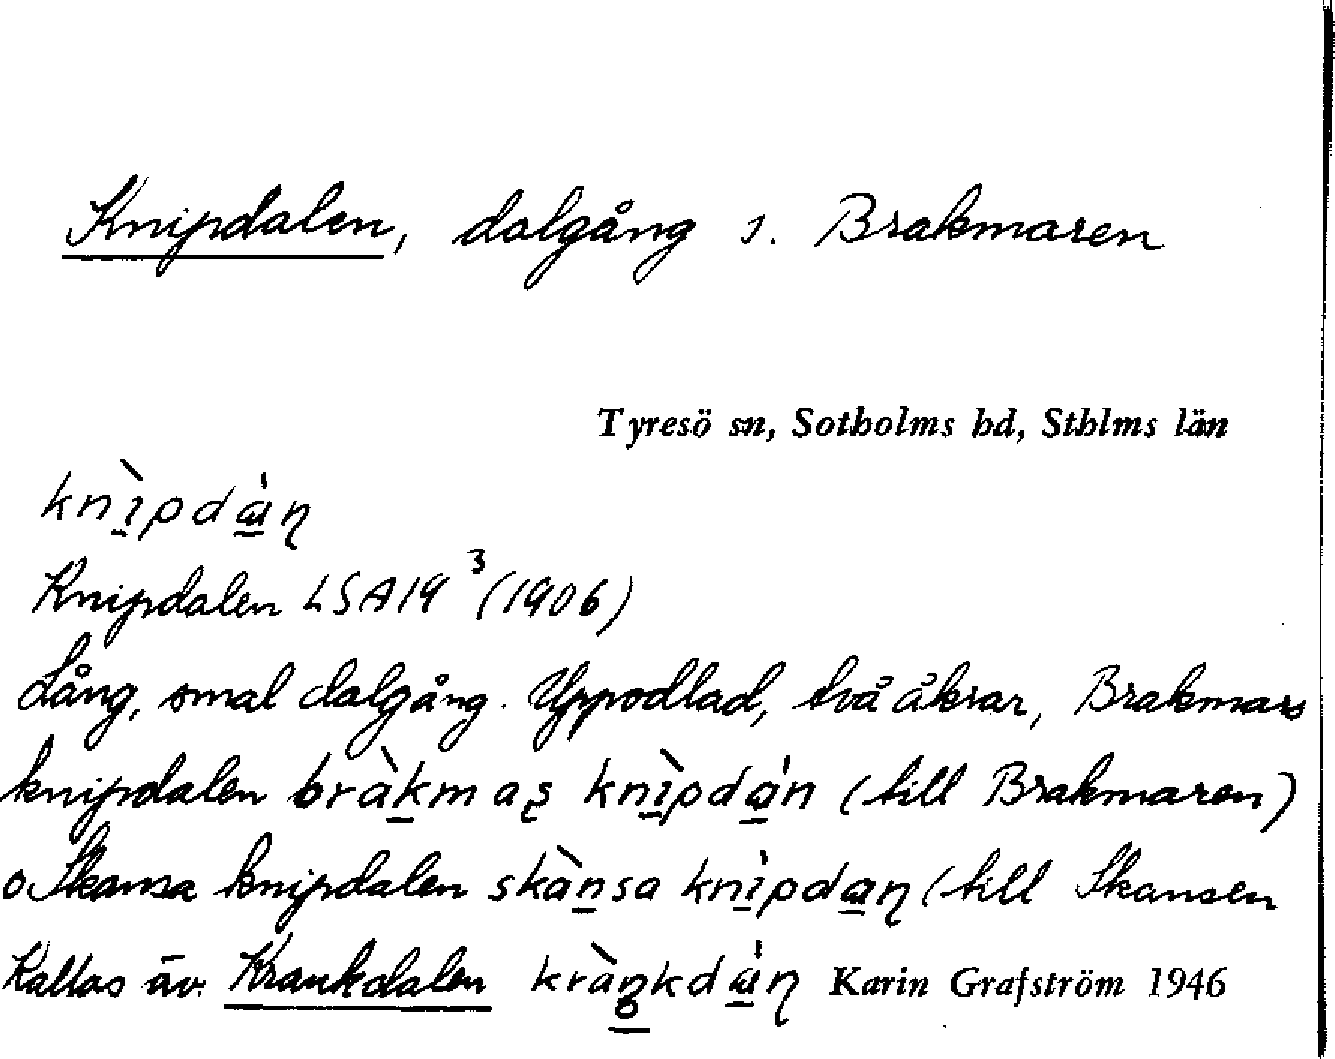 Knipdalen, dalgång s. Brakmaren
Tyresö sn, Sotholms hd, Sthlms län
knìpdàṇ
Knipdalen LSA19³ (1906)
Lång, smal dalgång. Uppodlad, två åkrar, Brakmars
knipdalen bràkmaș knìpdàn (till Brakmaren)
o Skansa knipdalen skànsa knìpdaṇ (till Skansen
Kallas äv. Krankdalen kràŋkdàṇ Karin Grafström 1946